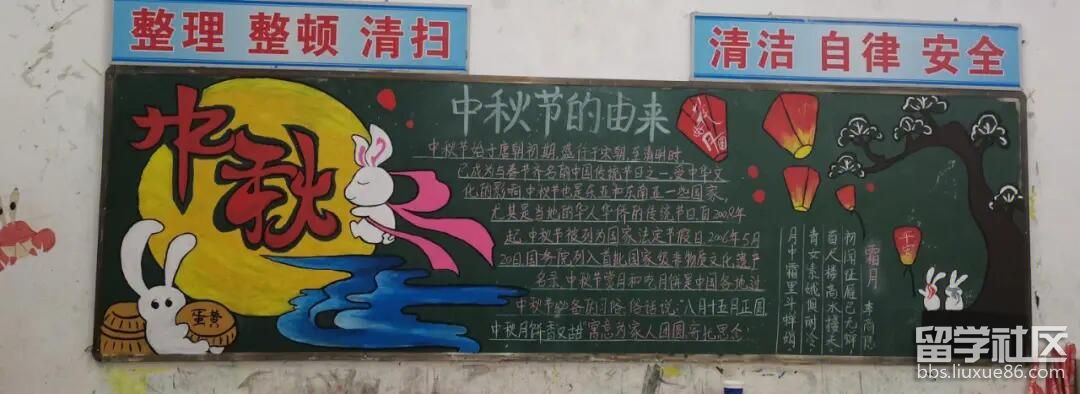 整理 整顿 清扫
清洁 自律 安全
中秋
中秋节的由来
中秋节始于唐朝初期,盛行于宋朝,至清明时
已成为与春节齐名的中国传统节日之一受中华文
化的影响中秋节也是东亚和东南亚一些国家,
尤其是当地的华人华侨的传统节日自2008年
起 中秋节被列为国家法定节假日2006年5月
20日国务院列入首批国家级非物质文化遗产
名录 中秋节赏月和吃月饼是中国各地过
中秋节必备的习俗 俗话说:八月十五月正圆
中秋月饼香又甜 寓意为家人团圆寄托思念
霜月
李商隐
初闻征雁已无蝉,
百人楼高水接天。
青女素娥俱耐冷,
月中霜里斗婵娟
蛋黄
留学社区
bbs.liuxue86.com